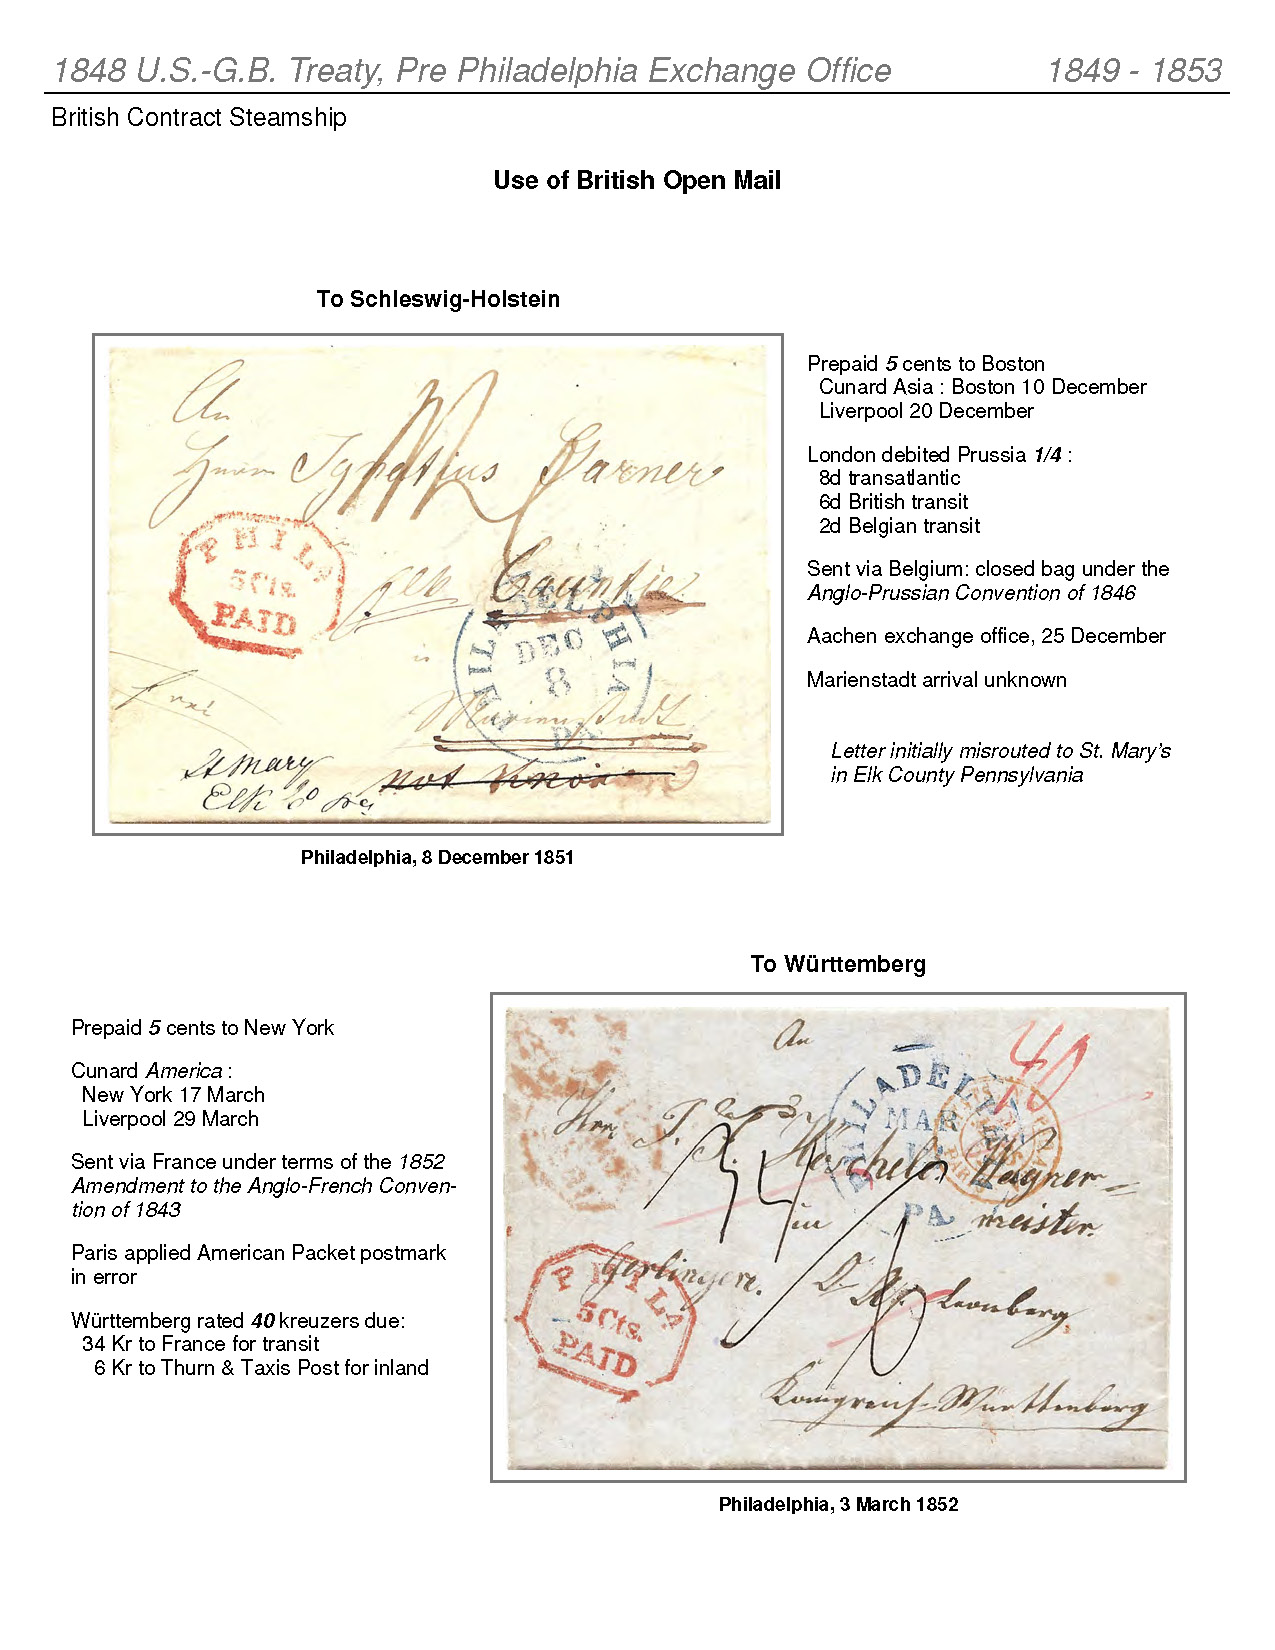 1848 U.S.-G.B. Treaty, Pre Philadelphia Exchange Office 1849 - 1853
British Contract Steamship
Use of British Open Mail
To Schleswig-Holstein
An
Herrn Ignatius Garner
Elk Countie
in
Marienstadt
St Mary
Elk Co
not known
PHILA
5 Cts.
PAID
PHILADELPHIA
DEC
8
PA
Prepaid 5 cents to Boston
Cunard Asia : Boston 10 December
Liverpool 20 December
London debited Prussia 1/4 :
8d transatlantic
6d British transit
2d Belgian transit
Sent via Belgium: closed bag under the
Anglo-Prussian Convention of 1846
Aachen exchange office, 25 December
Marienstadt arrival unknown
Letter initially misrouted to St. Mary's
in Elk County Pennsylvania
Philadelphia, 8 December 1851
To Württemberg
Prepaid 5 cents to New York
Cunard America :
New York 17 March
Liverpool 29 March
Sent via France under terms of the 1852
Amendment to the Anglo-French Conven-
tion of 1843
Paris applied American Packet postmark
in error
Württemberg rated 40 kreuzers due:
34 Kr to France for transit
6 Kr to Thurn & Taxis Post for inland
An
40
Wagner-
in meister.
Gerlingen. O. A. Leonberg
Königreich-Württemberg
PHILADELPHIA
MAR
PA.
PHILA
5 Cts.
PAID
Philadelphia, 3 March 1852